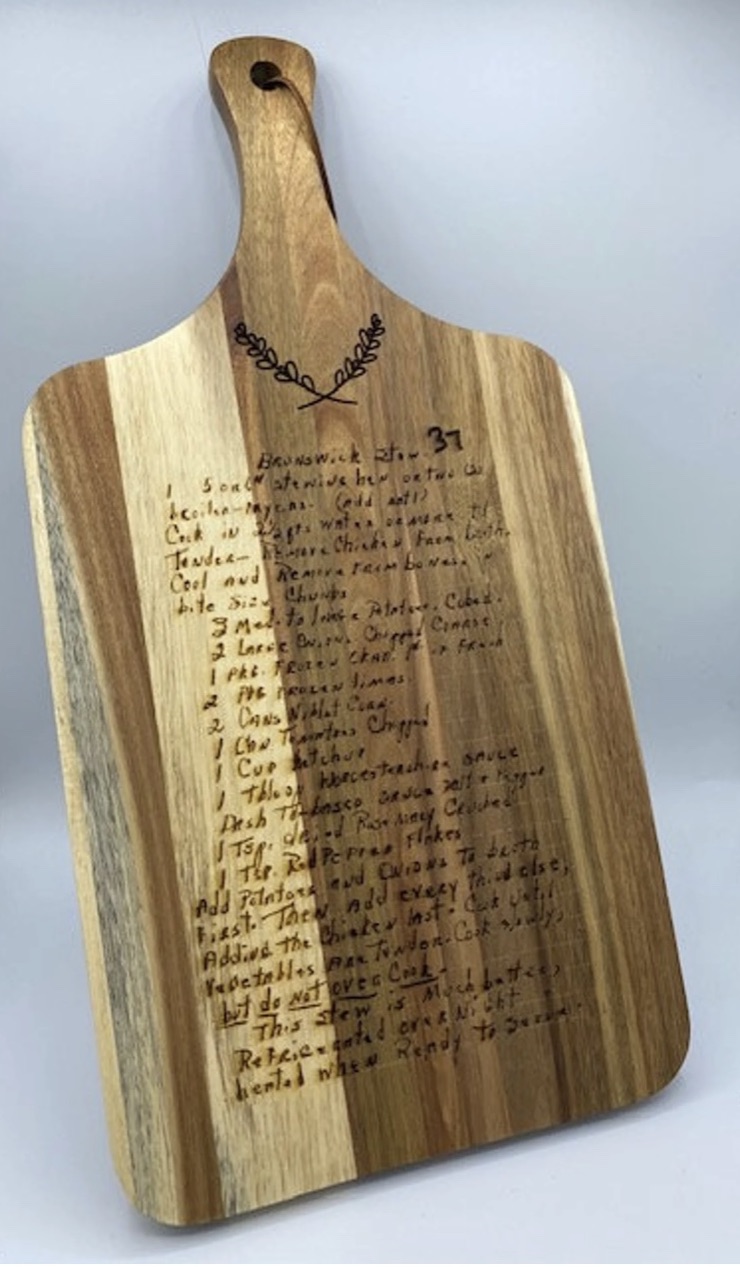 Brunswick Stew 37
1 5 or 6# stewing hen or two (2)
broiler-fryers. (Add salt)
Cook in 2½ qts water or more til
Tender- Remove Chicken from broth.
Cool and Remove from bones. in
bite Size Chunks
3 Med. to large Potatoes. Cubed.
2 Large Onions Chopped Coarse.
1 Pkg. Frozen Okra. or Fresh
2 Pkg Frozen limas.
2 Cans Niblet Corn.
1 Can Tomatoes Chopped
1 Cup Ketchup
1 Tblsp Worcestershire sauce
Dash Tobasco Sauce salt + Pepper
1 Tsp. dried Rosemary Crushed
1 Tsp. Red Pepper Flakes
Add Potatoes and Onions To broth
First. Then Add every thing else,
Adding the Chicken last. Cook until
Vegetables Are Tender. Cook slowly,
but do not over Cook.
This stew is Much better,
Refrigerated over Night
heated when Ready to Serve.